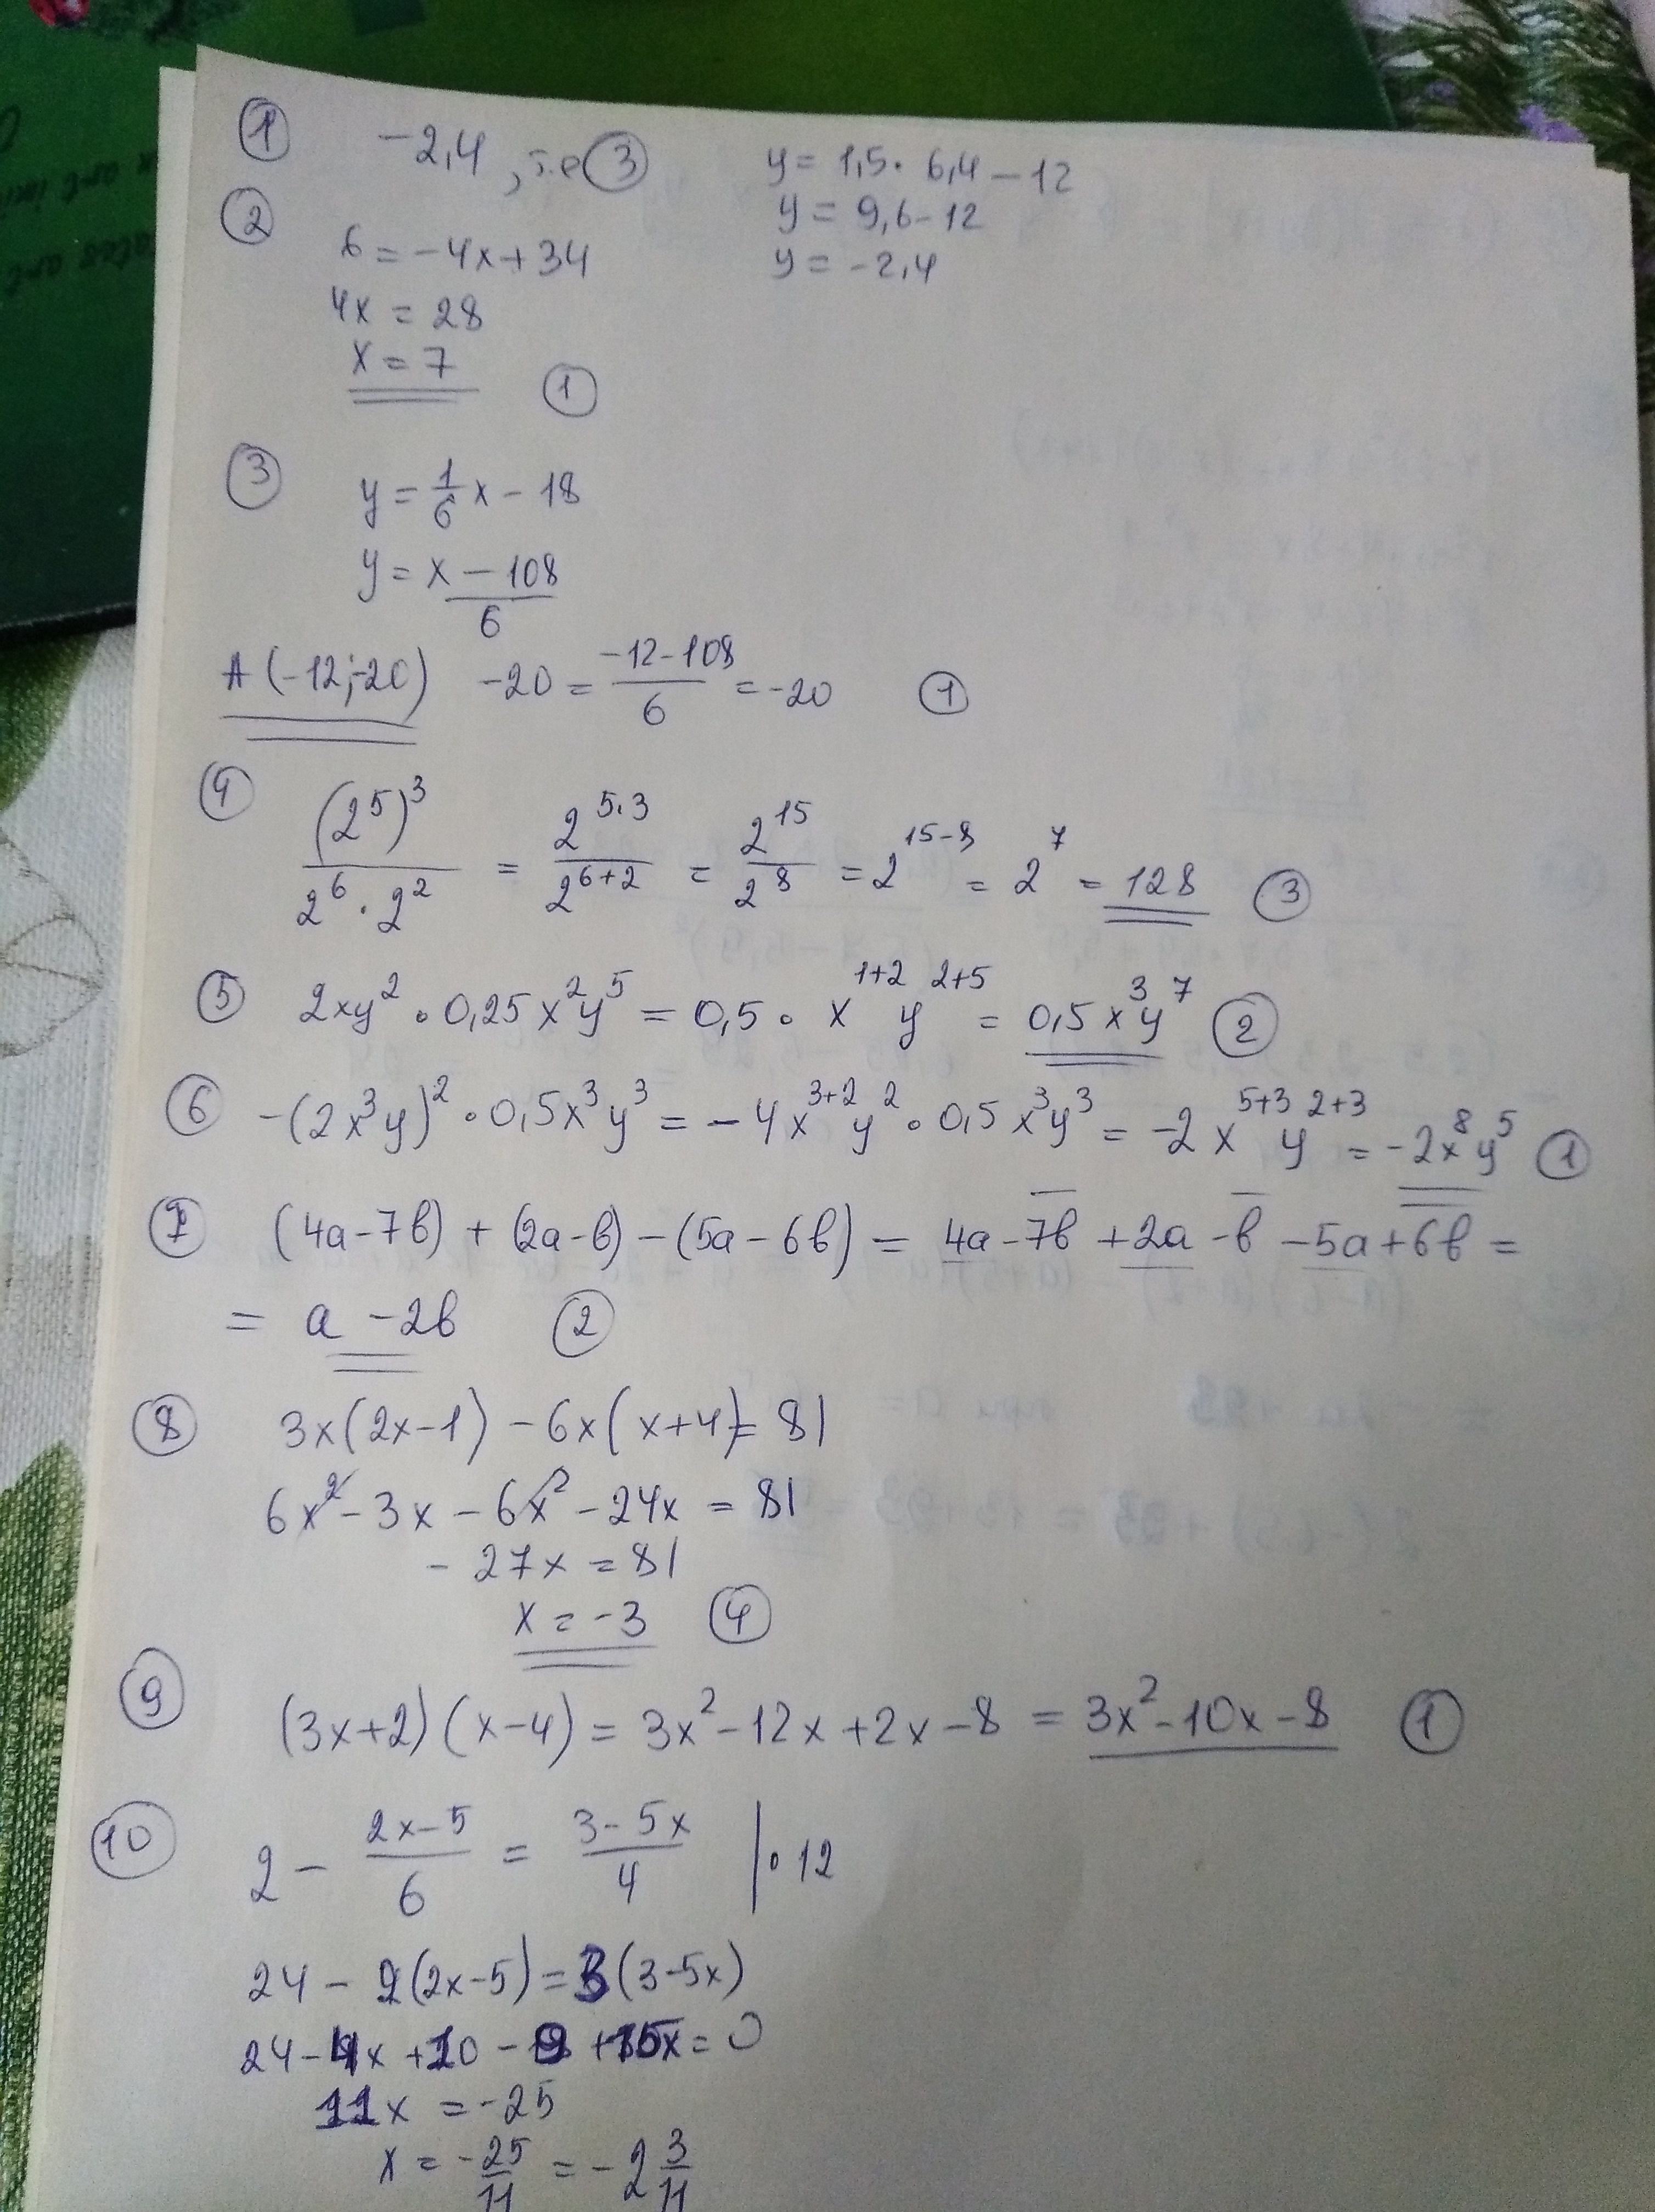 ① -2,4, т.е ③ y = 1,5 · 6,4 - 12
y = 9,6 - 12
② 6 = -4x + 34 y = -2,4
4x = 28
x = 7 ①
③ y = 1/6 x - 18
y = x - 108 / 6
A (-12;-20) -20 = (-12-108)/6 = -20 ①
④ (2⁵)³ / (2⁶ · 2²) = 2^(5·3) / 2^(6+2) = 2¹⁵ / 2⁸ = 2^(15-8) = 2⁷ = 128 ③
⑤ 2xy² · 0,25x²y⁵ = 0,5 · x^(1+2) y^(2+5) = 0,5x³y⁷ ②
⑥ -(2x³y)² · 0,5x³y³ = -4x^(3+2) y² · 0,5x³y³ = -2x^(5+3) y^(2+3) = -2x⁸y⁵ ①
⑦ (4a-7b) + (2a-b) - (5a-6b) = 4a - 7b + 2a - b - 5a + 6b =
= a - 2b ②
⑧ 3x(2x-1) - 6x(x+4) = 81
6x² - 3x - 6x² - 24x = 81
-27x = 81
x = -3 ④
⑨ (3x+2)(x-4) = 3x² - 12x + 2x - 8 = 3x² - 10x - 8 ①
⑩ 2 - (2x-5)/6 = (3-5x)/4 | · 12
24 - 2(2x-5) = 3(3-5x)
24 - 4x + 10 - 9 + 15x = 0
11x = -25
x = -25/11 = -2 3/11